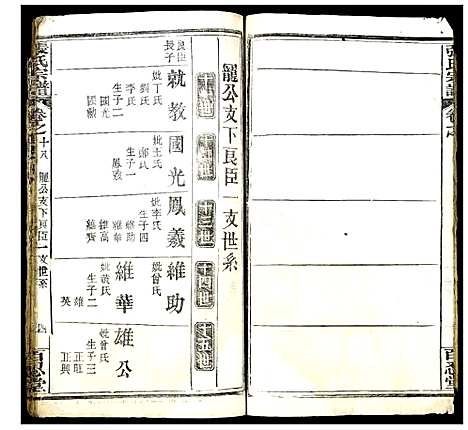 張氏宗譜
卷
百忍堂
龍公支下良臣一支世系
十一世
十二世
十三世
十四世
十五世
良臣長子
就教
妣丁氏
劉氏
李氏
生子二
國光
國勳
國光
妣王氏
鄭氏
生子一
鳳義
鳳義
妣李氏
生子四
維助
維華
維高
維齊
維助
妣曾氏
維華
妣黃氏
生子二
雄
英
雄公
妣曾氏
生子二
正旺
正興
張氏宗譜
卷之
十八
龍公支下良臣一支世系
百忍堂